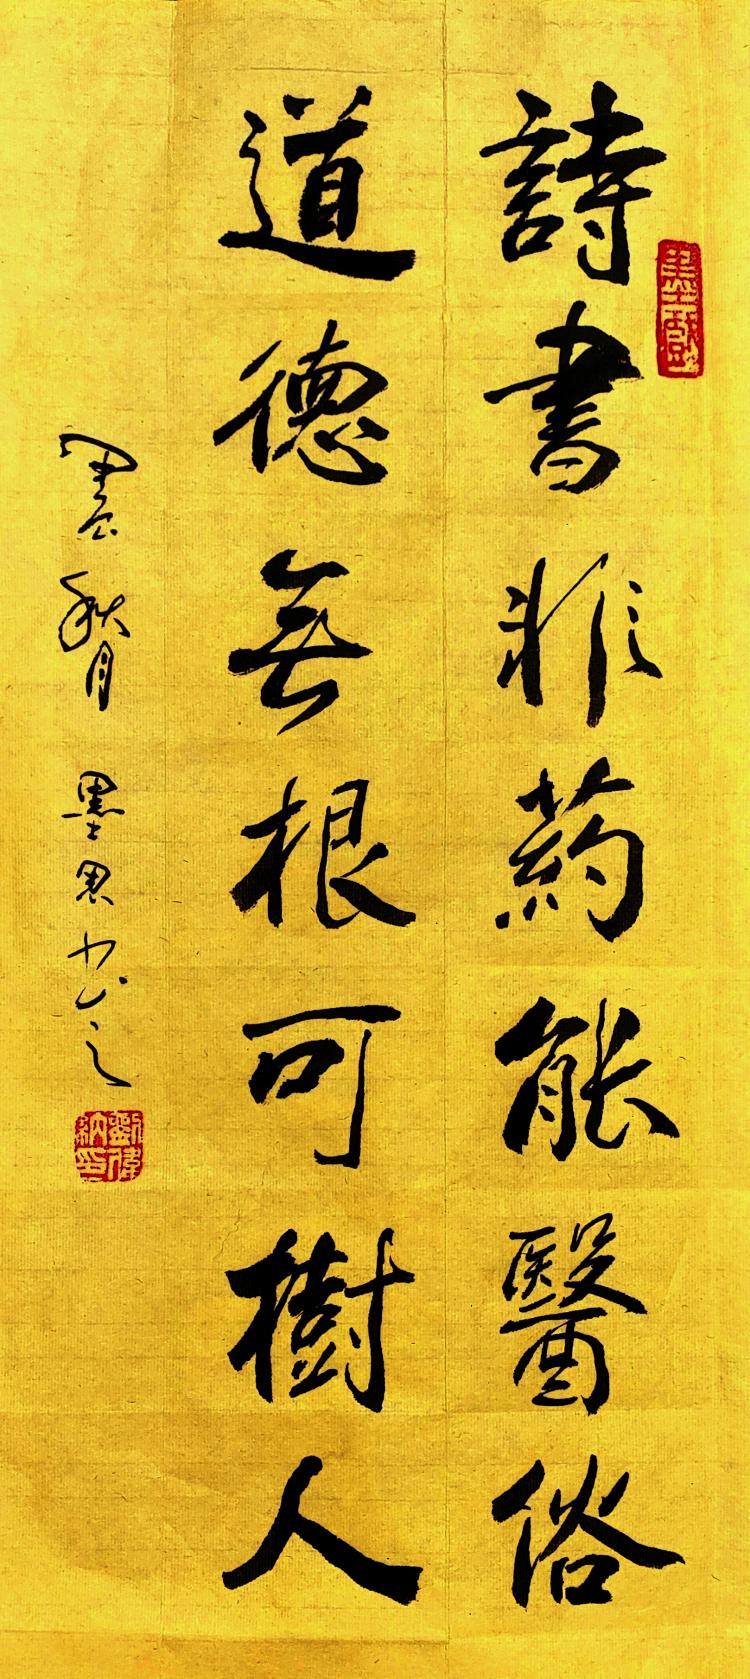 詩書非藥能醫俗
道德無根可樹人
秋月 墨
墨戲
劉偉納印